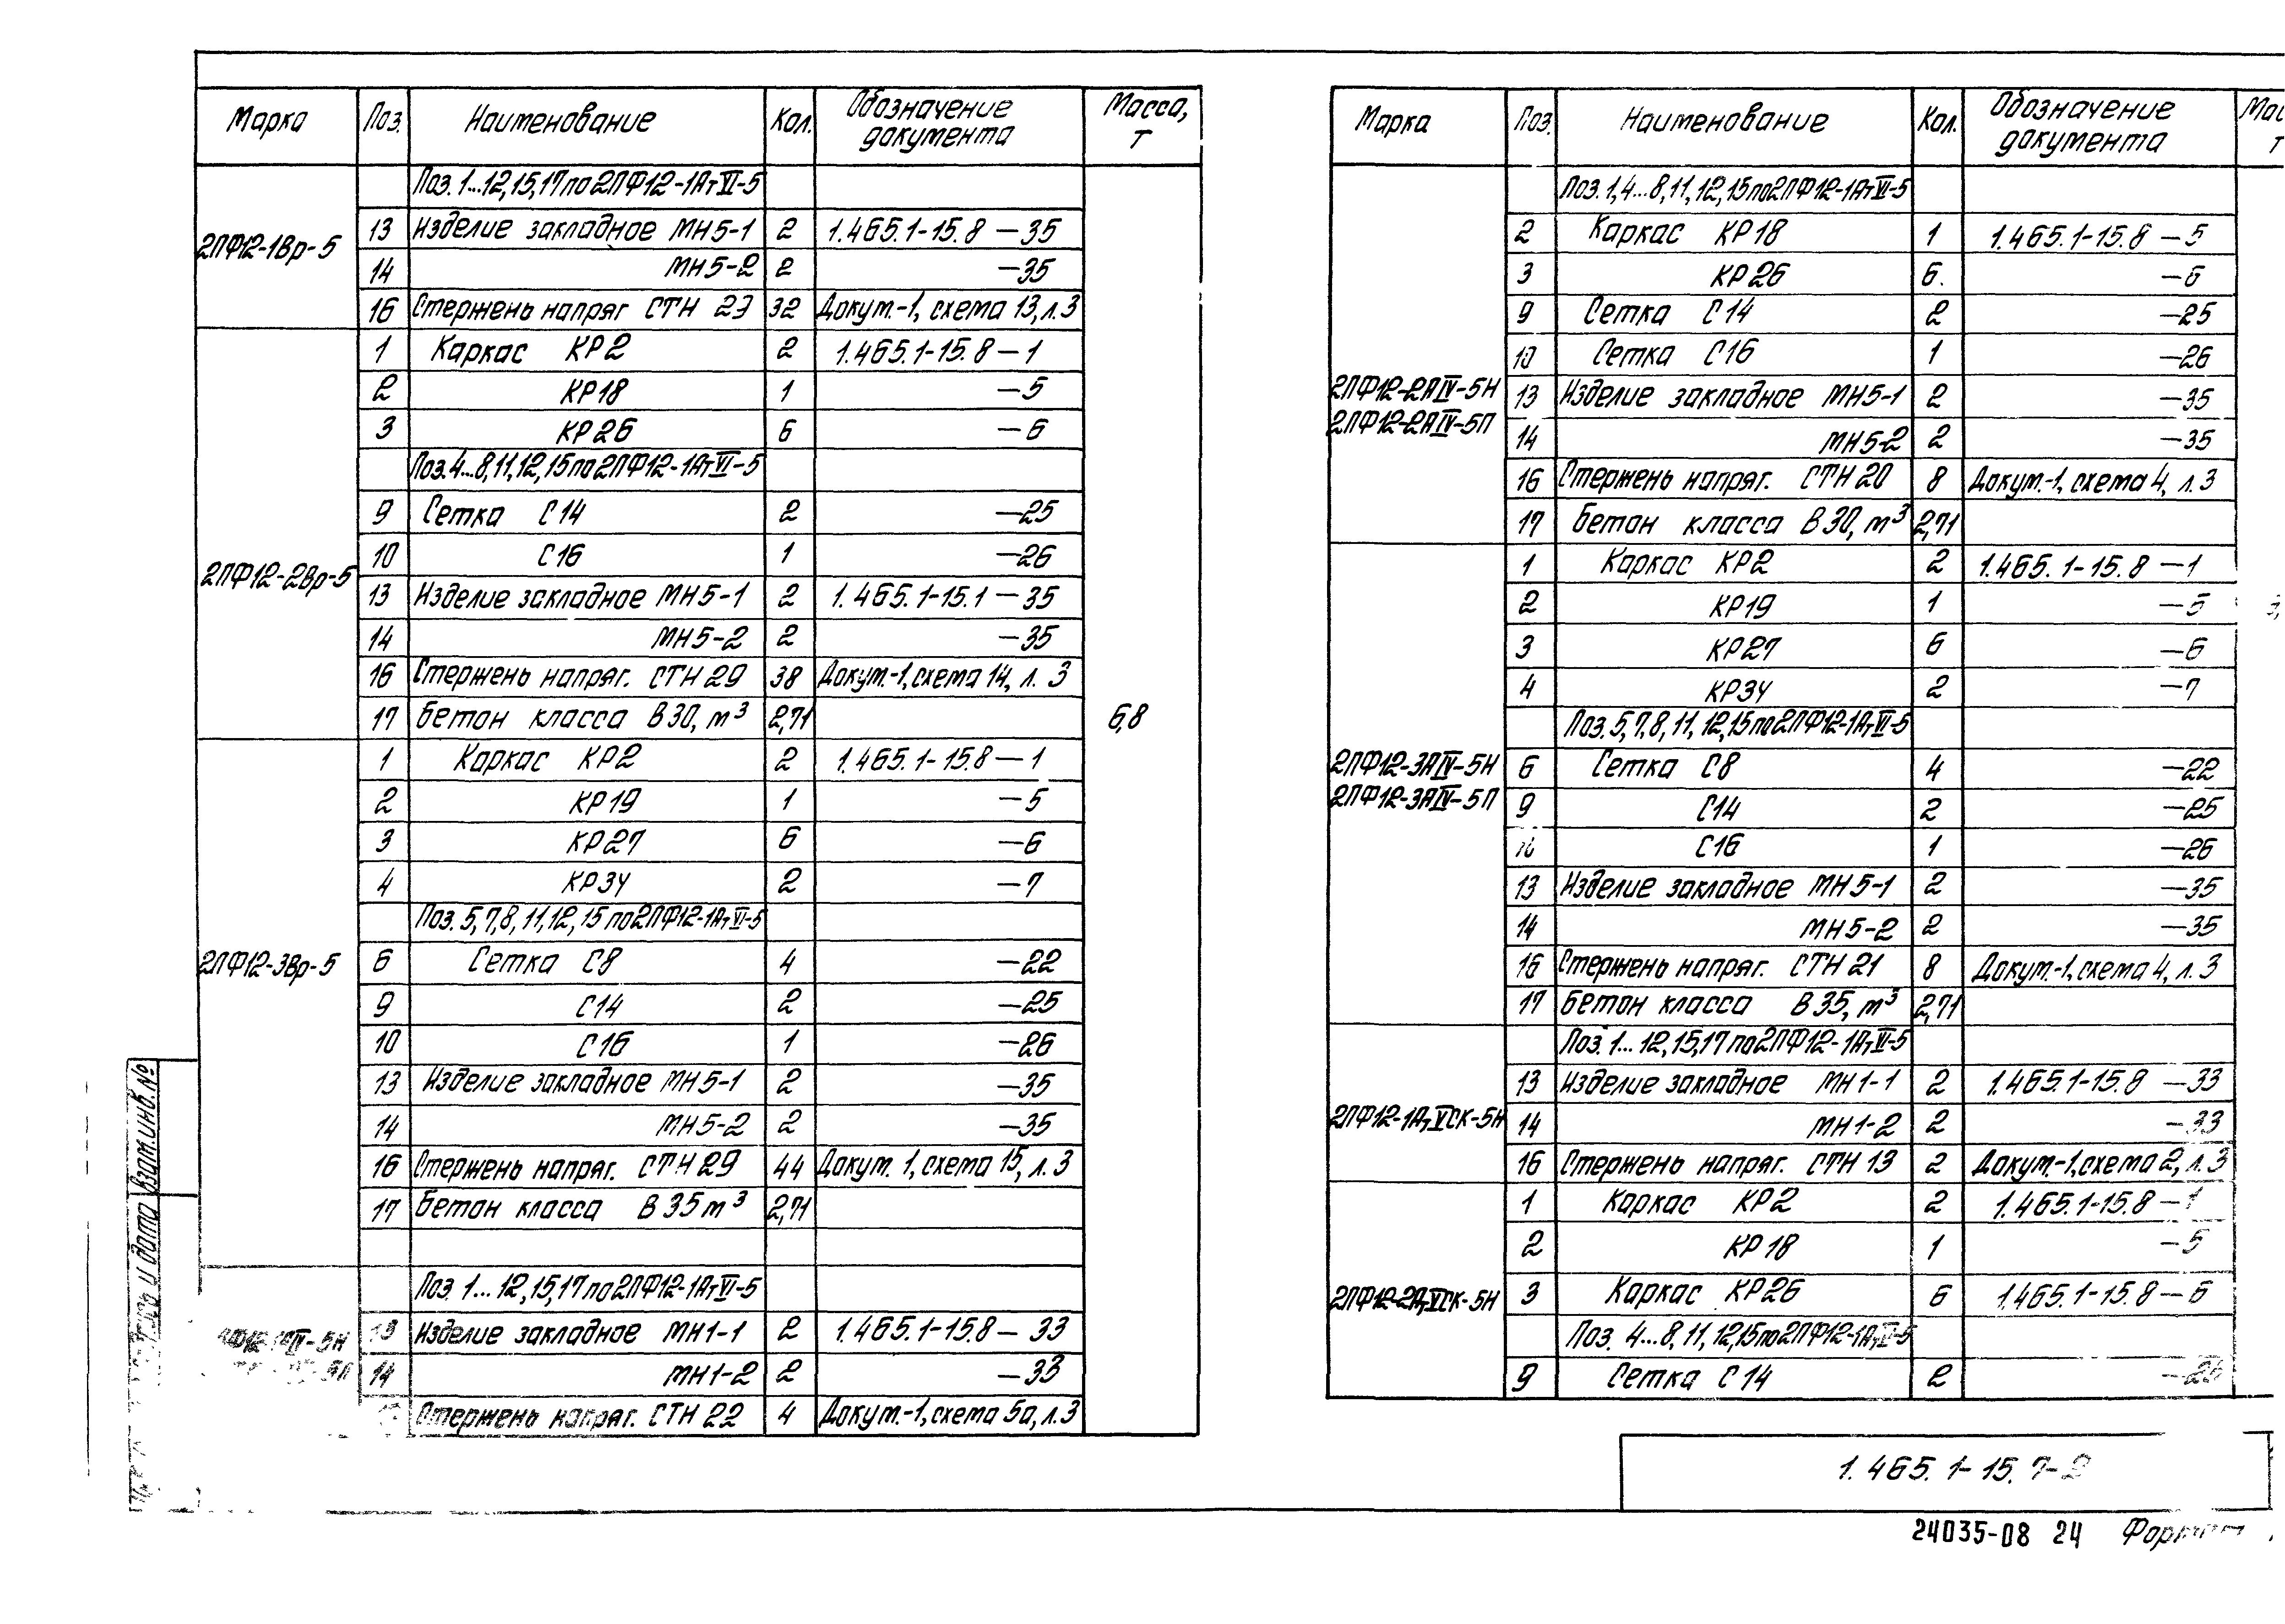 Марка Поз. Наименование Кол. Обозначение документа Масса, т
Поз. 1...12,15,17 по 2ПФ12-1АтVI-5
2ПФ12-1Вр-5
13 Изделие закладное МН5-1 2 1.465.1-15.8 —35
14 МН5-2 2 —35
16 Стержень напряг СТН 23 32 Докум.-1, схема 13, л.3
2ПФ12-2Вр-5
1 Каркас КР2 2 1.465.1-15.8 —1
2 КР18 1 —5
3 КР26 6 —6
Поз. 4...8,11,12,15 по 2ПФ12-1АтVI-5
9 Сетка С14 2 —25
10 С16 1 —26
13 Изделие закладное МН5-1 2 1.465.1-15.1 —35
14 МН5-2 2 —35
16 Стержень напряг. СТН 29 38 Докум.-1, схема 14, л. 3
17 Бетон класса В30, м³ 2,71
6,8
2ПФ12-3Вр-5
1 Каркас КР2 2 1.465.1-15.8 —1
2 КР19 1 —5
3 КР27 6 —6
4 КР34 2 —7
Поз. 5,7,8,11,12,15 по 2ПФ12-1АтVI-5
6 Сетка С8 4 —22
9 С14 2 —25
10 С16 1 —26
13 Изделие закладное МН5-1 2 —35
14 МН5-2 2 —35
16 Стержень напряг. СТН 29 44 Докум. 1, схема 15, л. 3
17 Бетон класса В35 м³ 2,71
Поз. 1...12,15,17 по 2ПФ12-1АтVI-5
13 Изделие закладное МН1-1 2 1.465.1-15.8 — 33
14 МН1-2 2 —33
Стержень напряг. СТН 22 4 Докум.-1, схема 5а, л.3
Марка Поз. Наименование Кол. Обозначение документа
Поз. 1,4...8,11,12,15 по 2ПФ12-1АтVI-5
2ПФ12-2АIV-5Н
2ПФ12-2АIV-5П
2 Каркас КР18 1 1.465.1-15.8 —5
3 КР26 6. —6
9 Сетка С14 2 —25
10 Сетка С16 1 —26
13 Изделие закладное МН5-1 2 —35
14 МН5-2 2 —35
16 Стержень напряг. СТН 20 8 Докум.-1, схема 4, л. 3
17 Бетон класса В30, м³ 2,71
2ПФ12-3АIV-5Н
2ПФ12-3АIV-5П
1 Каркас КР2 2 1.465.1-15.8 —1
2 КР19 1 —5
3 КР27 6 —6
4 КР34 2 —7
Поз. 5,7,8,11,12,15 по 2ПФ12-1АтVI-5
6 Сетка С8 4 —22
9 С14 2 —25
10 С16 1 —26
13 Изделие закладное МН5-1 2 —35
14 МН5-2 2 —35
16 Стержень напряг. СТН 21 8 Докум.-1, схема 4, л. 3
17 Бетон класса В35, м³ 2,71
Поз. 1...12,15,17 по 2ПФ12-1АтVI-5
2ПФ12-1АтVСК-5Н
13 Изделие закладное МН1-1 2 1.465.1-15.8 —33
14 МН1-2 2 —33
16 Стержень напряг. СТН 19 2 Докум.-1, схема 2, л.3
2ПФ12-2АтVСК-5Н
1 Каркас КР2 2 1.465.1-15.8 —1
2 КР18 1 —5
3 Каркас КР26 6 1.465.1-15.8 —6
Поз. 4...8,11,12,15 по 2ПФ12-1АтVI-5
9 Сетка С14 2
Взам.инв.№
и дата
1.465.1-15.7-
24035-08 24